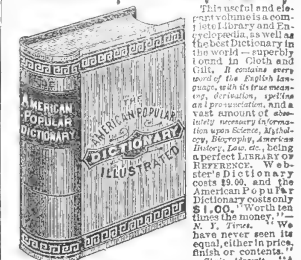 THE
AMERICAN POPULAR
DICTIONARY
ILLUSTRATED
AMERICAN
POPULAR
DICTIONARY
This useful and ele-
gant volume is a com-
plete Library and En-
cyclopædia, as well as
the best Dictionary in
the world — superbly
bound in Cloth and
Gilt. It contains every
word of the English lan-
guage, with its true mean-
ing, derivation, spelling
and pronunciation, and a
vast amount of abso-
lutely necessary informa-
tion upon Science, Mythol-
ogy, Biography, American
History, Law, etc., being
a perfect LIBRARY OF
REFERENCE. Web-
ster's Dictionary
costs $9.00, and the
American Popular
Dictionary costs only
$1.00. "Worth ten
times the money."—
N. Y. Times. "We
have never seen its
equal, either in price,
finish or contents."